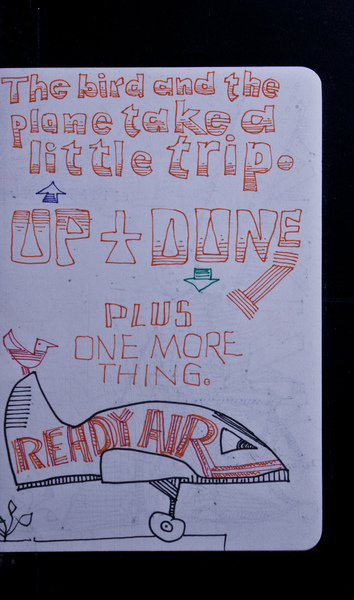 The bird and the
plane take a
little trip.
UP + DUNE
PLUS
ONE MORE
THING.
READY AIR